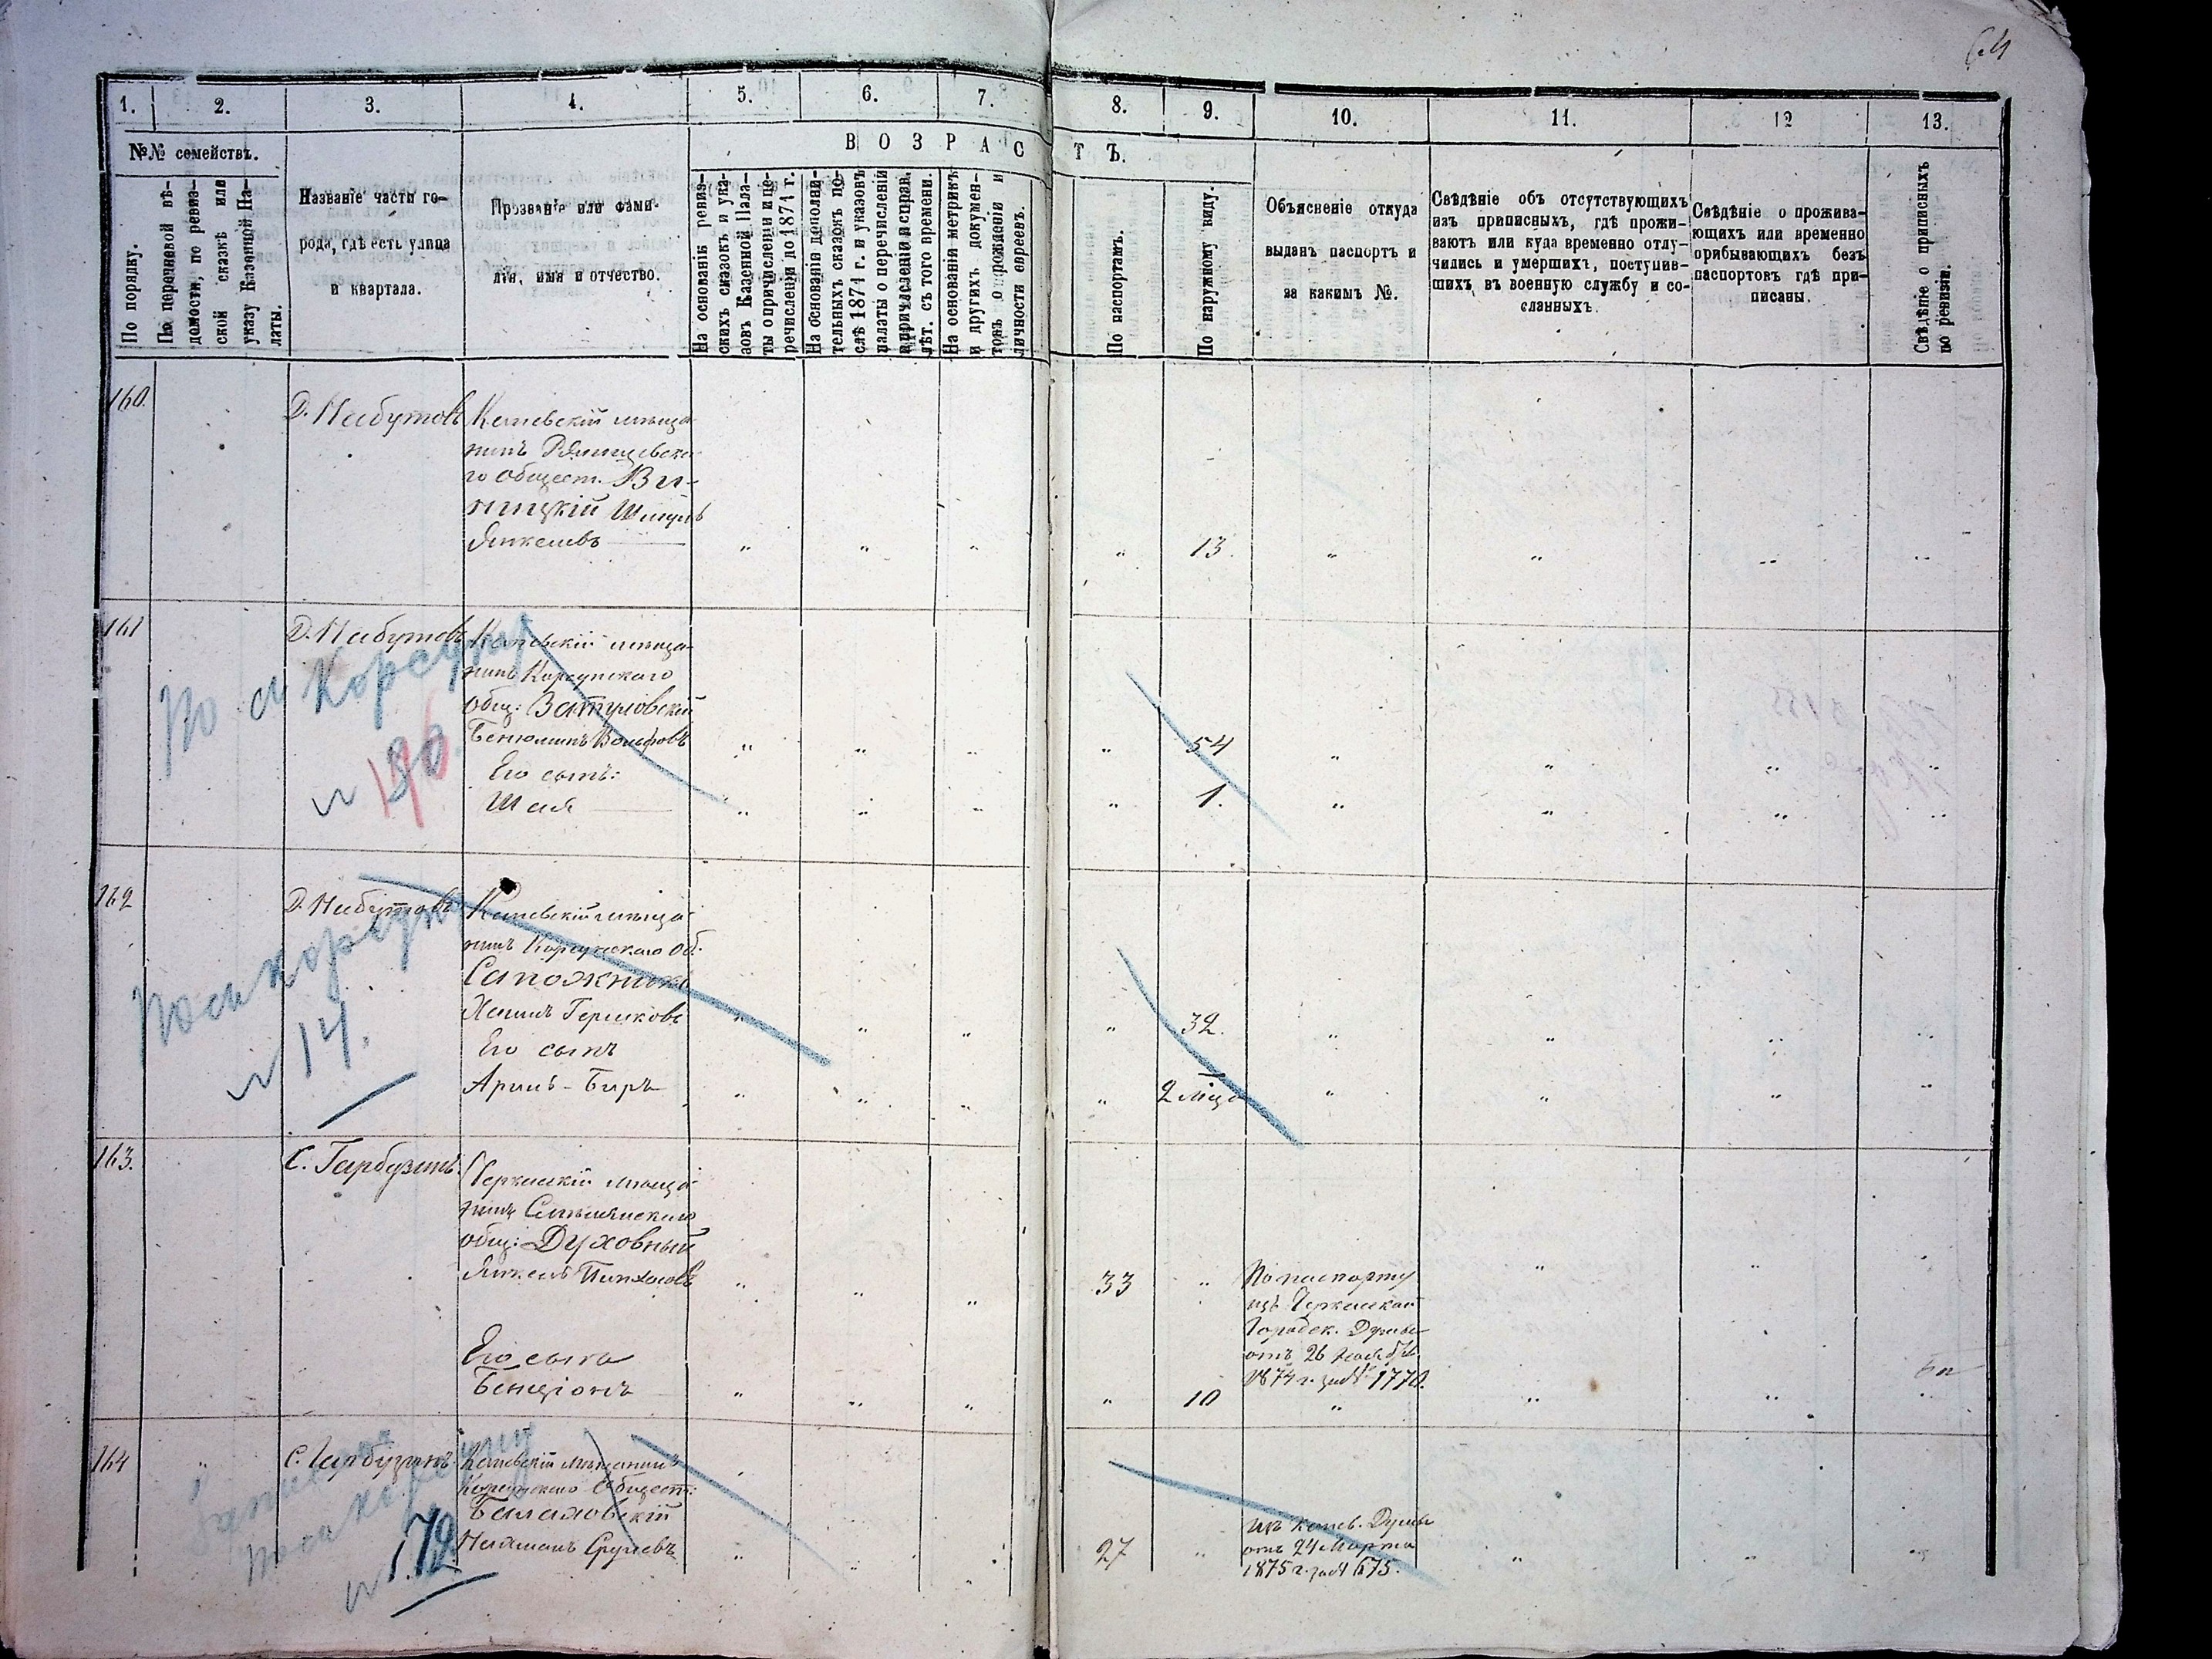 64
1. 2. 3. 4. 5. 6. 7. 8. 9. 10. 11. 12 13.
№№ семействъ.
В О З Р А С Т Ъ.
По порядку.
По перечневой вѣ-
домости, по ревиз-
ской сказкѣ или
указу Казенной Па-
латы.
Названіе части го-
рода, гдѣ есть улица
и квартала.
Прозваніе или фами-
лія, имя и отчество.
На основаніи ревиз-
скихъ сказокъ и ука-
зовъ Казенной Пала-
ты о причисленіи и пе-
речисленіи до 1874 г.
На основаніи дополни-
тельныхъ сказокъ по-
слѣ 1874 г. и указовъ
палаты о перечисленіи
и причисленіи и справ.
лѣт. съ того времени.
На основаніи метрикъ
и другихъ докумен-
товъ о рожденіи и
личности евреевъ.
По паспортамъ.
По наружному виду.
Объясненіе откуда
выданъ паспортъ и
за какимъ №.
Свѣдѣніе объ отсутствующихъ
изъ приписныхъ, гдѣ прожи-
ваютъ или куда временно отлу-
чились и умершихъ, поступив-
шихъ въ военную службу и со-
сланныхъ.
Свѣдѣніе о прожива-
ющихъ или временно
прибывающихъ безъ
паспортовъ гдѣ при-
писаны.
Свѣдѣніе о приписныхъ
по ревизіи.
160. Д. Набутовъ Каневскій мѣща-
нинъ
го общест. Ви-
ницкій Шмуль
Янкелевъ 13.
161 Д. Набутовъ Каневскій мѣща-
нинъ Корсунскаго
общ: Затуловскій
Бенюминъ Вольфовъ 54
Его сынъ:
Шая 1.
По м Корсуну
196
162 Д. Набутовъ Каневскій мѣща-
нинъ Корсунскаго об.
Сапожникъ
Хаимъ Гершковъ 32.
Его сынъ
Арiнь-Беръ 2 мѣсц
По м Корсуну
№ 14.
163. С. Гарбузинъ Черкаскій мѣща-
нинъ Смѣлянскаго
общ: Духовный
Янкель Пинхасовъ 33 По паспорту
изъ Черкаской
Городск. Думы
отъ 26 Ноября
1874 г. за № 1770.
Его сынъ
Бенціонъ 10
164 С. Гарбузинъ Каневскій мѣщанинъ
Корсунскаго Общест:
Балаховскій
Нахманъ Срулевъ 27 изъ Канев. Думы
отъ 24 Марта
1875 г. за № 675.
По м Корсуну
№ 172